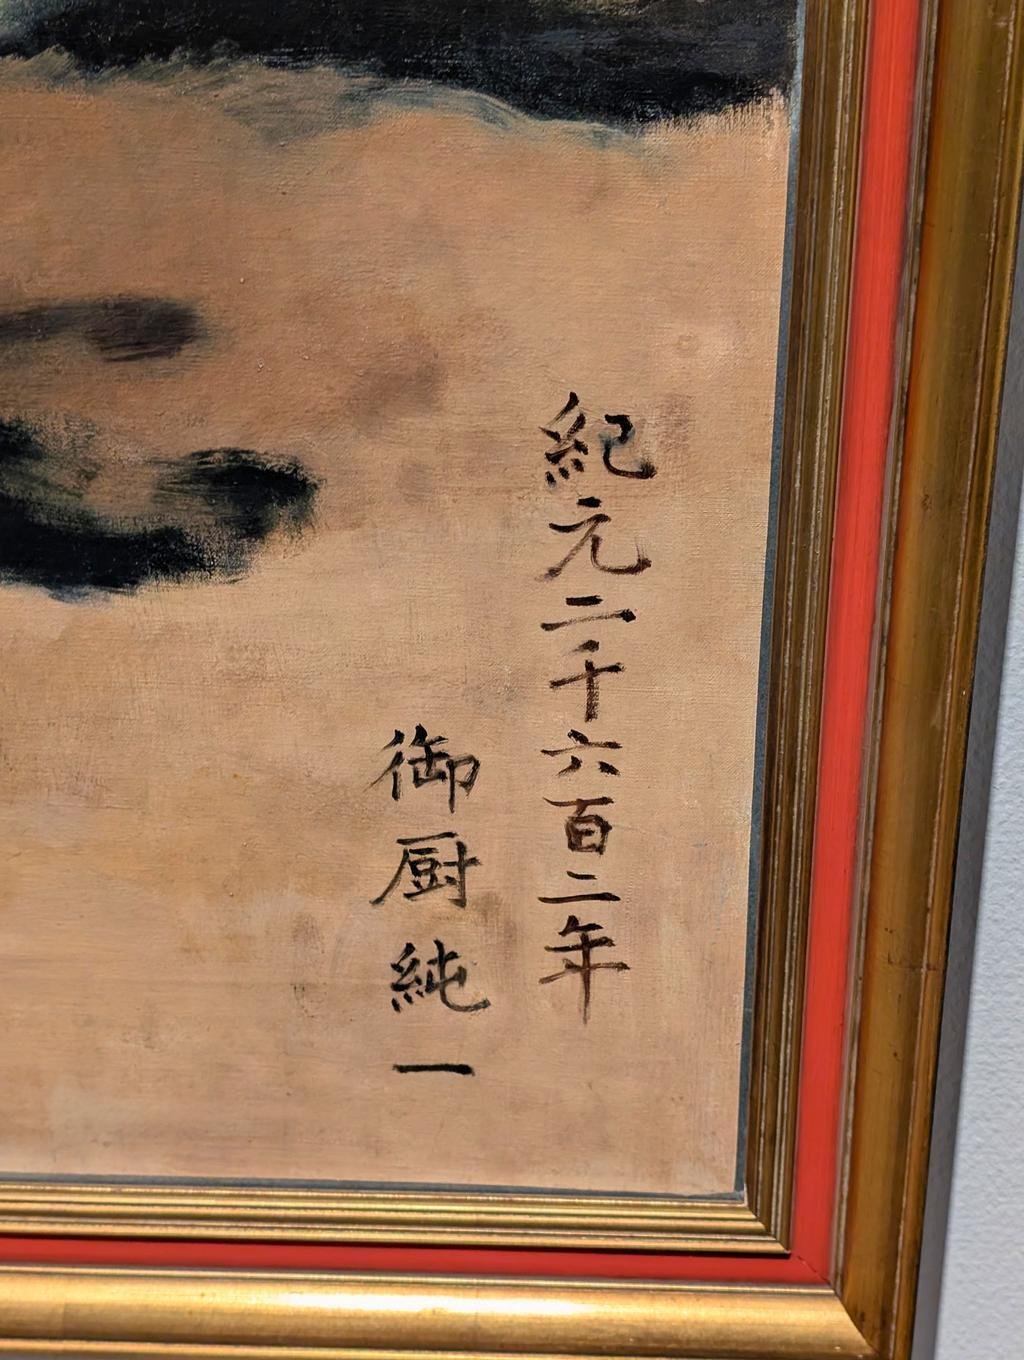 紀元二千六百二年
御厨純一